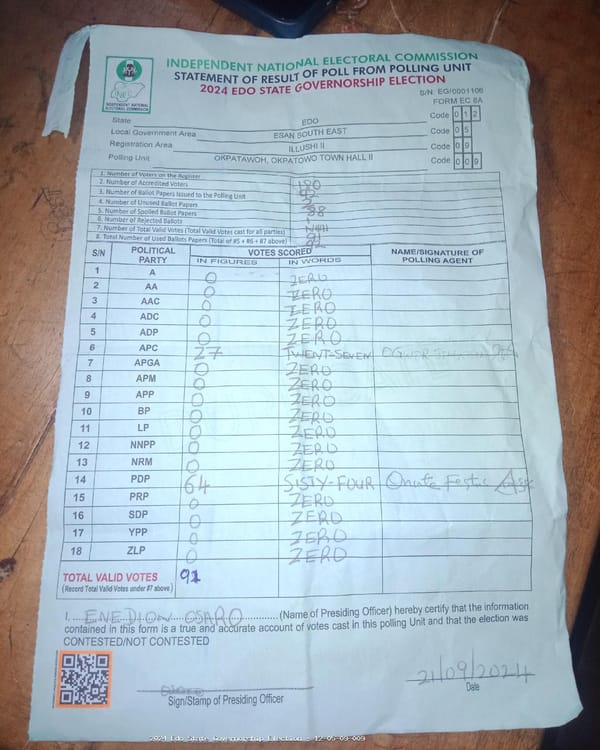 INDEPENDENT NATIONAL ELECTORAL COMMISSION
STATEMENT OF RESULT OF POLL FROM POLLING UNIT
2024 EDO STATE GOVERNORSHIP ELECTION
INDEPENDENT NATIONAL ELECTORAL COMMISSION
S/N: EG/0001106
FORM EC 8A
State EDO Code 0 1 2
Local Government Area ESAN SOUTH EAST Code 0 5
Registration Area ILLUSHI II Code 0 9
Polling Unit OKPATAWOH, OKPATOWO TOWN HALL II Code 0 0 9
1. Number of Voters on the Register
2. Number of Accredited Voters
3. Number of Ballot Papers Issued to the Polling Unit
4. Number of Unused Ballot Papers
5. Number of Spoiled Ballot Papers
6. Number of Rejected Ballots
7. Number of Total Valid Votes (Total Valid Votes cast for all parties)
8. Total Number of Used Ballots Papers (Total of #5 + #6 + #7 above)
S/N POLITICAL PARTY VOTES SCORED NAME/SIGNATURE OF POLLING AGENT
IN FIGURES IN WORDS
1 A 0 ZERO
2 AA 0 ZERO
3 AAC 0 ZERO
4 ADC 0 ZERO
5 ADP 0 ZERO
6 APC 27 TWENT-SEVEN
7 APGA 0 ZERO
8 APM 0 ZERO
9 APP 0 ZERO
10 BP 0 ZERO
11 LP 0 ZERO
12 NNPP 0 ZERO
13 NRM 0 ZERO
14 PDP 64 SISTY-FOUR
15 PRP 0 ZERO
16 SDP 0 ZERO
17 YPP 0 ZERO
18 ZLP 0 ZERO
TOTAL VALID VOTES 91
(Record Total Valid Votes under #7 above)
I, ENEDION OSARO (Name of Presiding Officer) hereby certify that the information
contained in this form is a true and accurate account of votes cast in this polling Unit and that the election was
CONTESTED/NOT CONTESTED
21/09/2024
Sign/Stamp of Presiding Officer Date
2024 Edo State Governorship Election - 12-05-09-009